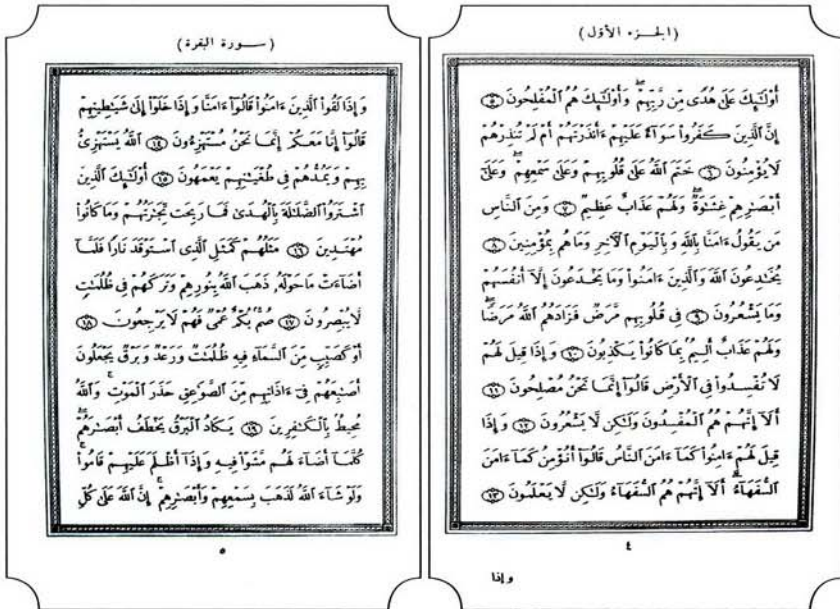 (الجـزء الأوّل)
أُوْلَـٰٓئِكَ عَلَىٰ هُدًى مِّن رَّبِّهِمْ ۖ وَأُوْلَـٰٓئِكَ هُمُ ٱلْمُفْلِحُونَ ٥
إِنَّ ٱلَّذِينَ كَفَرُوا۟ سَوَآءٌ عَلَيْهِمْ ءَأَنذَرْتَهُمْ أَمْ لَمْ تُنذِرْهُمْ
لَا يُؤْمِنُونَ ٦ خَتَمَ ٱللَّهُ عَلَىٰ قُلُوبِهِمْ وَعَلَىٰ سَمْعِهِمْ ۖ وَعَلَىٰٓ
أَبْصَـٰرِهِمْ غِشَـٰوَةٌ ۖ وَلَهُمْ عَذَابٌ عَظِيمٌ ٧ وَمِنَ ٱلنَّاسِ
مَن يَقُولُ ءَامَنَّا بِٱللَّهِ وَبِٱلْيَوْمِ ٱلْـَٔاخِرِ وَمَا هُم بِمُؤْمِنِينَ ٨
يُخَـٰدِعُونَ ٱللَّهَ وَٱلَّذِينَ ءَامَنُوا۟ وَمَا يَخْدَعُونَ إِلَّآ أَنفُسَهُمْ
وَمَا يَشْعُرُونَ ٩ فِى قُلُوبِهِم مَّرَضٌ فَزَادَهُمُ ٱللَّهُ مَرَضًا ۖ
وَلَهُمْ عَذَابٌ أَلِيمٌۢ بِمَا كَانُوا۟ يَكْذِبُونَ ١٠ وَإِذَا قِيلَ لَهُمْ
لَا تُفْسِدُوا۟ فِى ٱلْأَرْضِ قَالُوٓا۟ إِنَّمَا نَحْنُ مُصْلِحُونَ ١١
أَلَآ إِنَّهُمْ هُمُ ٱلْمُفْسِدُونَ وَلَـٰكِن لَّا يَشْعُرُونَ ١٢ وَإِذَا
قِيلَ لَهُمْ ءَامِنُوا۟ كَمَآ ءَامَنَ ٱلنَّاسُ قَالُوٓا۟ أَنُؤْمِنُ كَمَآ ءَامَنَ
ٱلسُّفَهَآءُ ۗ أَلَآ إِنَّهُمْ هُمُ ٱلسُّفَهَآءُ وَلَـٰكِن لَّا يَعْلَمُونَ ١٣
٤
وإذا
(سـورة البقرة)
وَإِذَا لَقُوا۟ ٱلَّذِينَ ءَامَنُوا۟ قَالُوٓا۟ ءَامَنَّا وَإِذَا خَلَوْا۟ إِلَىٰ شَيَـٰطِينِهِمْ
قَالُوٓا۟ إِنَّا مَعَكُمْ إِنَّمَا نَحْنُ مُسْتَهْزِءُونَ ١٤ ٱللَّهُ يَسْتَهْزِئُ
بِهِمْ وَيَمُدُّهُمْ فِى طُغْيَـٰنِهِمْ يَعْمَهُونَ ١٥ أُوْلَـٰٓئِكَ ٱلَّذِينَ
ٱشْتَرَوُا۟ ٱلضَّلَـٰلَةَ بِٱلْهُدَىٰ فَمَا رَبِحَت تِّجَـٰرَتُهُمْ وَمَا كَانُوا۟
مُهْتَدِينَ ١٦ مَثَلُهُمْ كَمَثَلِ ٱلَّذِى ٱسْتَوْقَدَ نَارًا فَلَمَّآ
أَضَآءَتْ مَا حَوْلَهُۥ ذَهَبَ ٱللَّهُ بِنُورِهِمْ وَتَرَكَهُمْ فِى ظُلُمَـٰتٍ
لَّا يُبْصِرُونَ ١٧ صُمٌّۢ بُكْمٌ عُمْىٌ فَهُمْ لَا يَرْجِعُونَ ١٨
أَوْ كَصَيِّبٍ مِّنَ ٱلسَّمَآءِ فِيهِ ظُلُمَـٰتٌ وَرَعْدٌ وَبَرْقٌ يَجْعَلُونَ
أَصَـٰبِعَهُمْ فِىٓ ءَاذَانِهِم مِّنَ ٱلصَّوَٰعِقِ حَذَرَ ٱلْمَوْتِ ۚ وَٱللَّهُ
مُحِيطٌۢ بِٱلْكَـٰفِرِينَ ١٩ يَكَادُ ٱلْبَرْقُ يَخْطَفُ أَبْصَـٰرَهُمْ ۖ
كُلَّمَآ أَضَآءَ لَهُم مَّشَوْا۟ فِيهِ وَإِذَآ أَظْلَمَ عَلَيْهِمْ قَامُوا۟ ۚ
وَلَوْ شَآءَ ٱللَّهُ لَذَهَبَ بِسَمْعِهِمْ وَأَبْصَـٰرِهِمْ ۚ إِنَّ ٱللَّهَ عَلَىٰ كُلِّ
٥